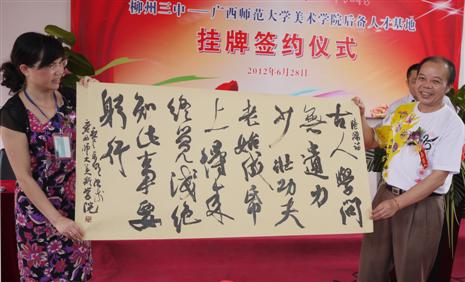 柳州三中——广西师范大学美术学院后备人才基地
挂牌签约仪式
2012年6月28日
陸游詩
古人學問
無遺力
少壯功夫
老始成帋
上得来
終覺淺絶
知此事要
躬行